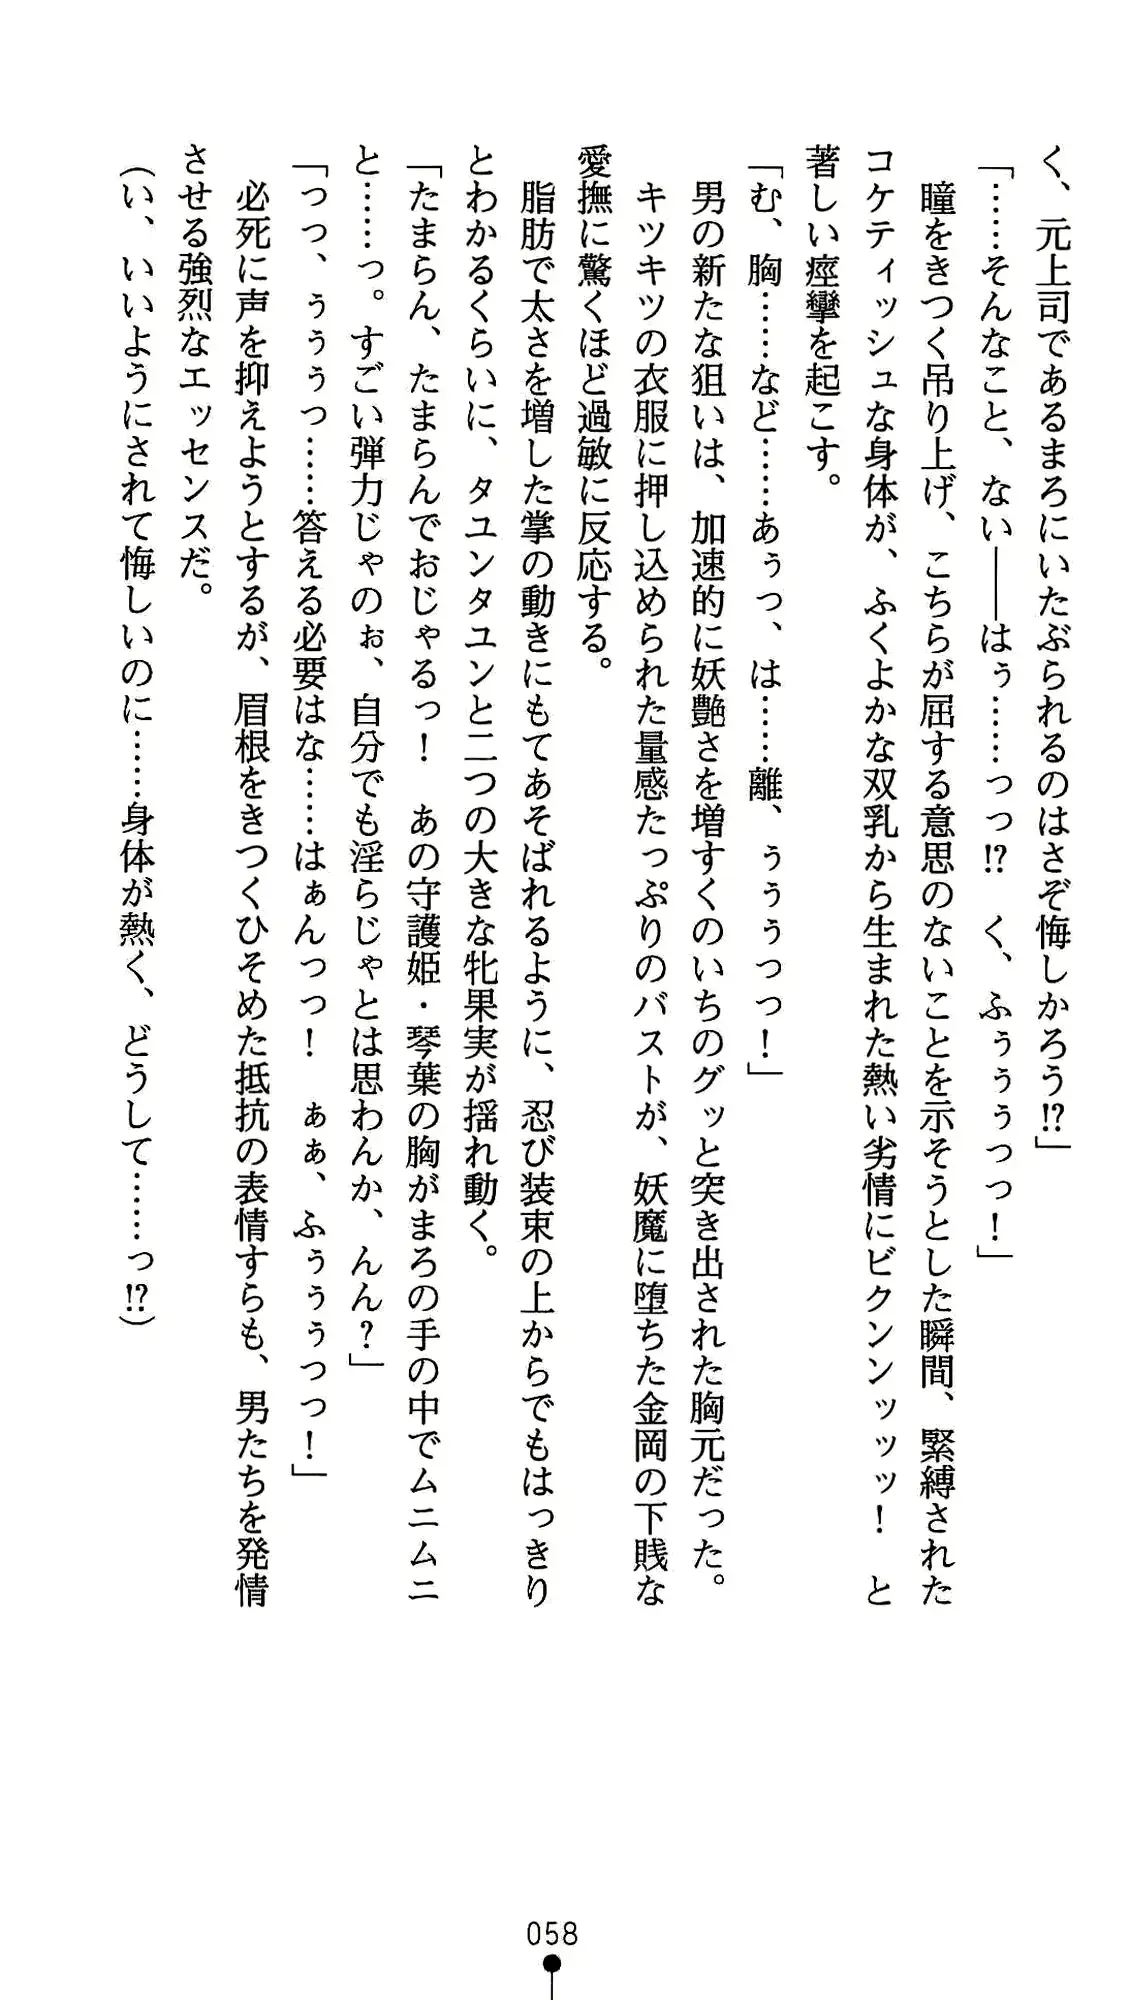 く、元上司であるまろにいたぶられるのはさぞ悔しかろう!?」
「……そんなこと、ない――はぅ……っっ!?　く、ふぅぅぅっっ！」
　瞳をきつく吊り上げ、こちらが屈する意思のないことを示そうとした瞬間、緊縛された
コケティッシュな身体が、ふくよかな双乳から生まれた熱い劣情にビクンンッッッ！　と
著しい痙攣を起こす。
「む、胸……など……あぅっ、は……離、ぅぅぅっっ！」
　男の新たな狙いは、加速的に妖艶さを増すくのいちのグッと突き出された胸元だった。
　キツキツの衣服に押し込められた量感たっぷりのバストが、妖魔に堕ちた金岡の下賎な
愛撫に驚くほど過敏に反応する。
　脂肪で太さを増した掌の動きにもてあそばれるように、忍び装束の上からでもはっきり
とわかるくらいに、タユンタユンと二つの大きな牝果実が揺れ動く。
「たまらん、たまらんでおじゃるっ！　あの守護姫・琴葉の胸がまろの手の中でムニムニ
と……っ。すごい弾力じゃのぉ、自分でも淫らじゃとは思わんか、んん？」
「っっ、ぅぅぅっ……答える必要はな……はぁんっっ！　ぁぁ、ふぅぅぅっっ！」
　必死に声を抑えようとするが、眉根をきつくひそめた抵抗の表情すらも、男たちを発情
させる強烈なエッセンスだ。
（い、いいようにされて悔しいのに……身体が熱く、どうして……っ!?）
058